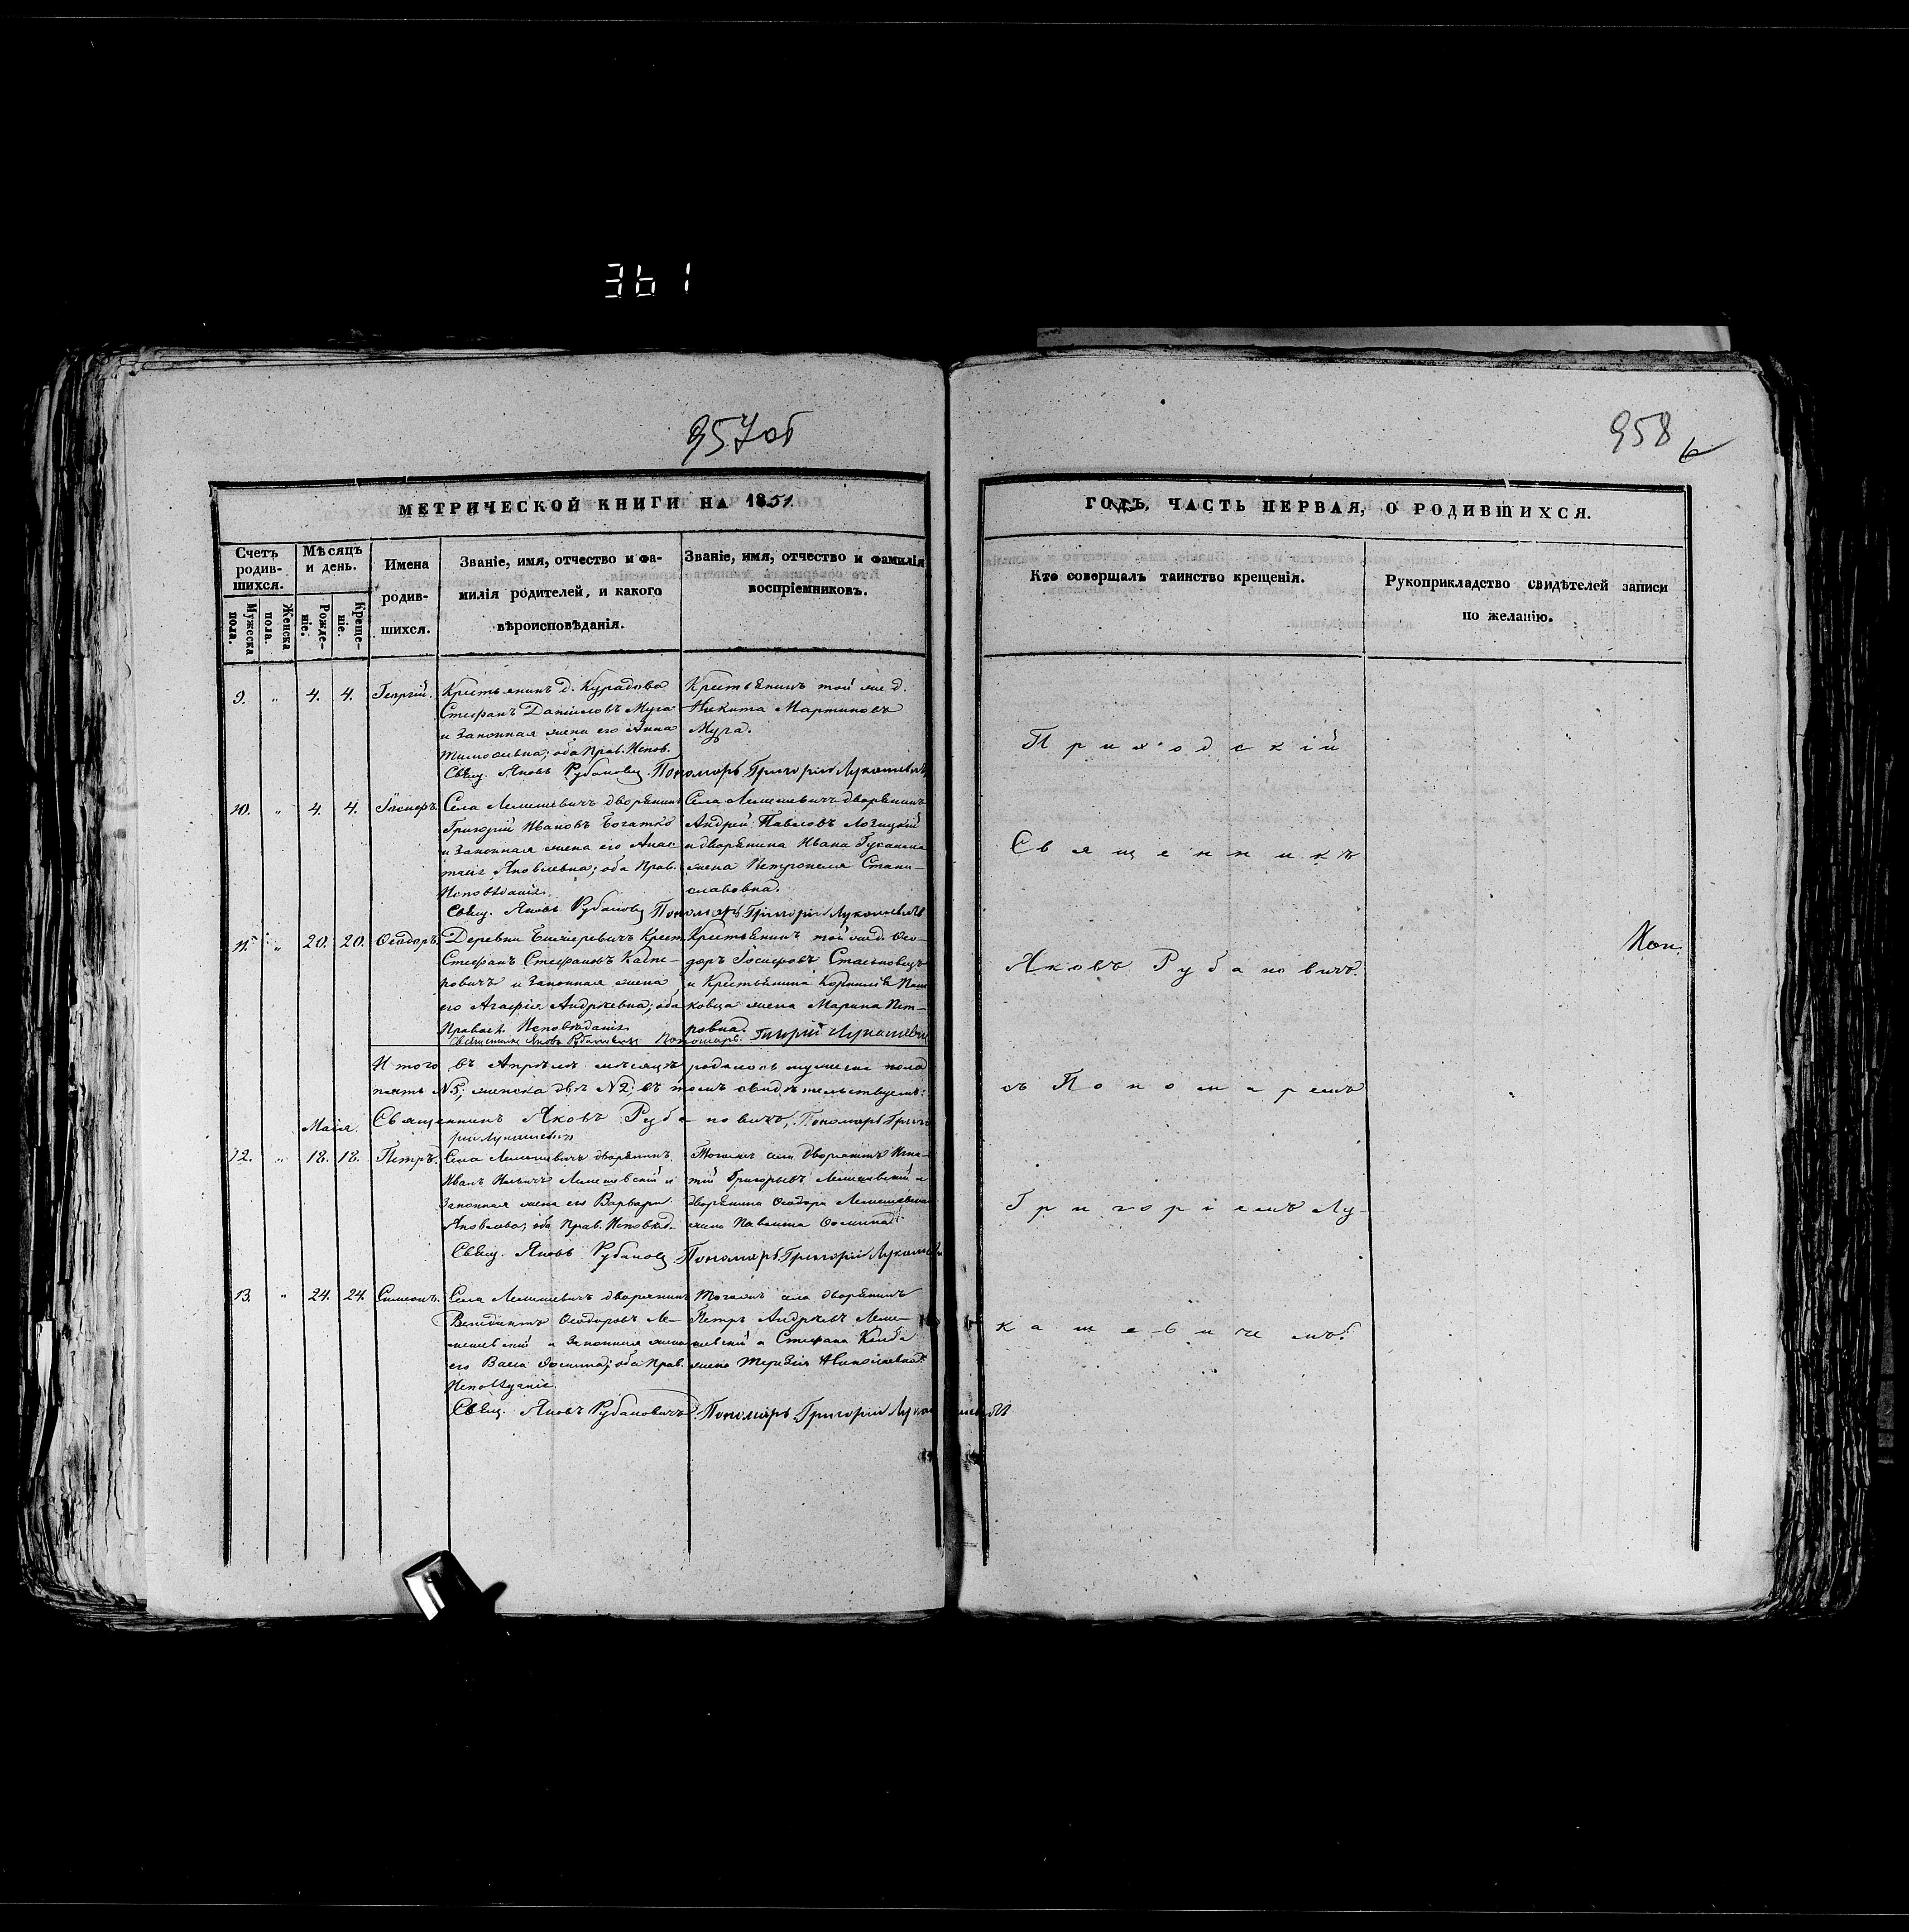 361
957об
958
МЕТРИЧЕСКОЙ КНИГИ НА 1851.
Счетъ родив-шихся.
Мужеска пола.
Женска пола.
Мѣсяцъ и день.
Рожде-ніе.
Креще-ніе.
Имена
родив-
шихся.
Званіе, имя, отчество и фа-
милія родителей, и какого
вѣроисповѣданія.
Званіе, имя, отчество и фамилія
воспріемниковъ.
9. " 4. 4. Георгій.
Крестьянинъ д. Курадова
Стефанъ Даніиловъ Муга
и законная жена его Анна
Тимофеевна; оба Прав. Испов.
Крестьянинъ той же д.
Никита Мартиновъ
Муга.
Свящ. Яковъ Рубанович Пономарь Григорій Лукашевичъ
10. " 4. 4. Іосифъ.
Села Лемешевичъ дворянинъ
Григорій Ивановъ Богатко
и законная жена его Анас-
тасія Яковлевна; оба Прав.
Исповѣданія.
Села Лемешевичъ дворянинъ
Андрей Павловъ
и дворянина Ивана
жена Петронеля Стани-
славовна.
Свящ. Яковъ Рубанович Пономарь Григорій Лукашевичъ
11. " 20. 20. Ѳеодоръ.
Деревни Крест.
Стефанъ Стефановъ Каспе-
ровичъ и законная жена
его Агафія Андреевна; оба
Правосл. Исповѣданія
Крестьянинъ той же д. Ѳео-
доръ Іосифовъ
и Крестьянина Корнилія
ковца жена Марина Пет-
ровна.
Священникъ Яковъ Рубановичъ Пономарь Григорій Лукашевич
Итого въ Апрѣлѣ мѣсяцѣ родилось мужеска пола
пять №5; женска двѣ №2; въ томъ свидѣтельствуемъ:
Священникъ Яковъ Рубановичъ, Пономарь Григо-
рій Лукашевичъ
Маія.
12. " 18. 18. Петръ.
Села Лемешевичъ дворянинъ
Иванъ Ильичъ Лемешевскій и
законная жена его Варвара
Яковлева; оба Прав. Исповѣд.
Тогожъ села дворянинъ Игна-
тій Григорьевъ Лемешевскій и
дворянина Ѳеодора Лемешевскаго
жена Ѳомина.
Свящ. Яковъ Рубанович Пономарь Григорій Лукашевичъ
13. " 24. 24. Симеонъ.
Села Лемешевичъ дворянинъ
Венедиктъ Ѳеодоровъ Ле-
мешевскій и законная жена
его Васса Ѳомина; оба Прав.
Исповѣданія.
Тогожъ села дворянинъ
Петръ Андреевъ Леме-
шевскій и Стефана
жена Терезія Николаевна.
Свящ. Яковъ Рубановичъ. Пономарь Григорій Лукашевичъ
ГОДЪ, ЧАСТЬ ПЕРВАЯ, О РОДИВШИХСЯ.
Кто совершалъ таинство крещенія.
Рукоприкладство свидѣтелей записи
по желанію.
Приходскій
Священникъ
Яковъ Рубановичъ
съ Пономаремъ
Григоріемъ Лу-
кашевичемъ.
Коп.